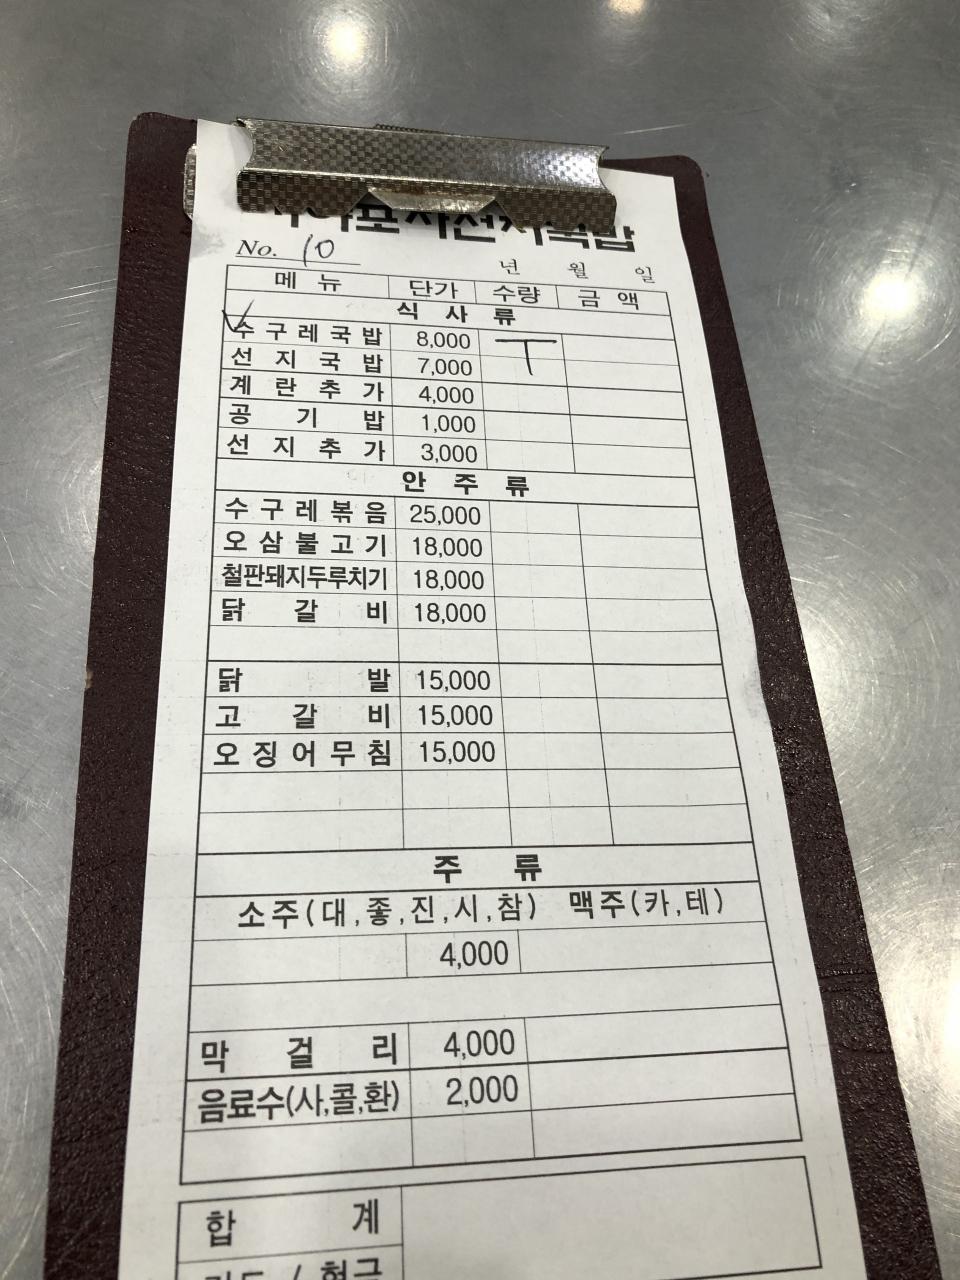 No. 10
년 월 일
메뉴 단가 수량 금액
식사류
수구레국밥 8,000
선지국밥 7,000
계란추가 4,000
공기밥 1,000
선지추가 3,000
안주류
수구레볶음 25,000
오삼불고기 18,000
철판돼지두루치기 18,000
닭갈비 18,000
닭발 15,000
고갈비 15,000
오징어무침 15,000
주류
소주(대,좋,진,시,참) 맥주(카,테)
4,000
막걸리 4,000
음료수(사,콜,환) 2,000
합계
카드 / 현금